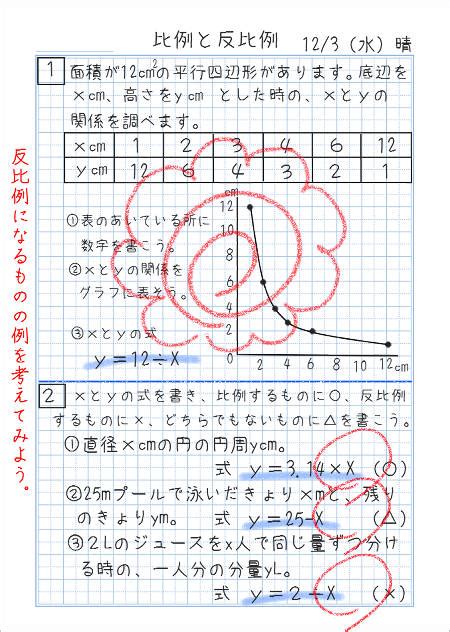 比例と反比例 12/3 (水) 晴
1 面積が12cm²の平行四辺形があります。底辺を
xcm、高さをycm とした時の、xとyの
関係を調べます。
xcm 1 2 3 4 6 12
ycm 12 6 4 3 2 1
①表のあいている所に
数字を書こう。
②xとyの関係を
グラフに表そう。
③xとyの式
y=12÷X
cm
12
10
8
6
4
2
0 2 4 6 8 10 12cm
2 xとyの式を書き、比例するものに○、反比例
するものに×、どちらでもないものに△を書こう。
①直径xcmの円の円周ycm。
式 y=3.14×X (○)
②25mプールで泳いだきょりxmと、残り
のきょりym。 式 y=25-X (△)
③2Lのジュースをx人で同じ量ずつ分け
る時の、一人分の分量yL。
式 y=2÷X (×)
反比例になるものの例を考えてみよう。